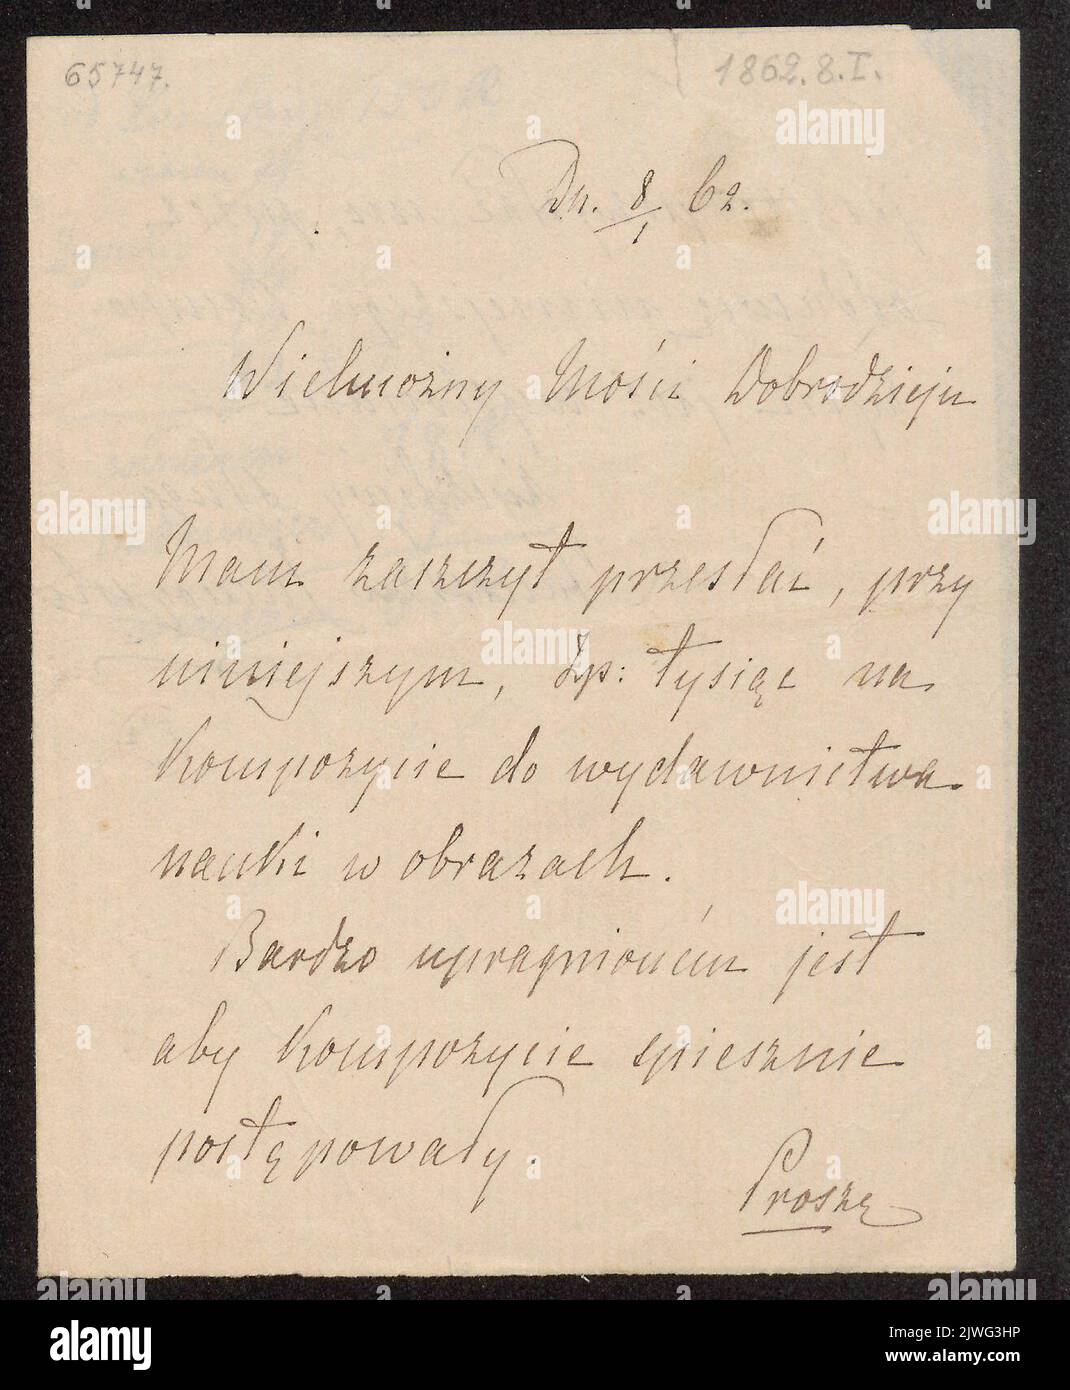 65747.
1862.8.I.
Dn. 8/1 62.
Wielmożny Mości Dobrodzieju
Mam zaszczyt przesłać, przy
niniejszym, Zp: tysiąc na
kompozycie do wydawnictwa
nauki w obrazach.
Bardzo upragnioném jest
aby kompozycie spiesznie
postępowały.
Proszę
alamy
Image ID: 2JWG3HP
www.alamy.com